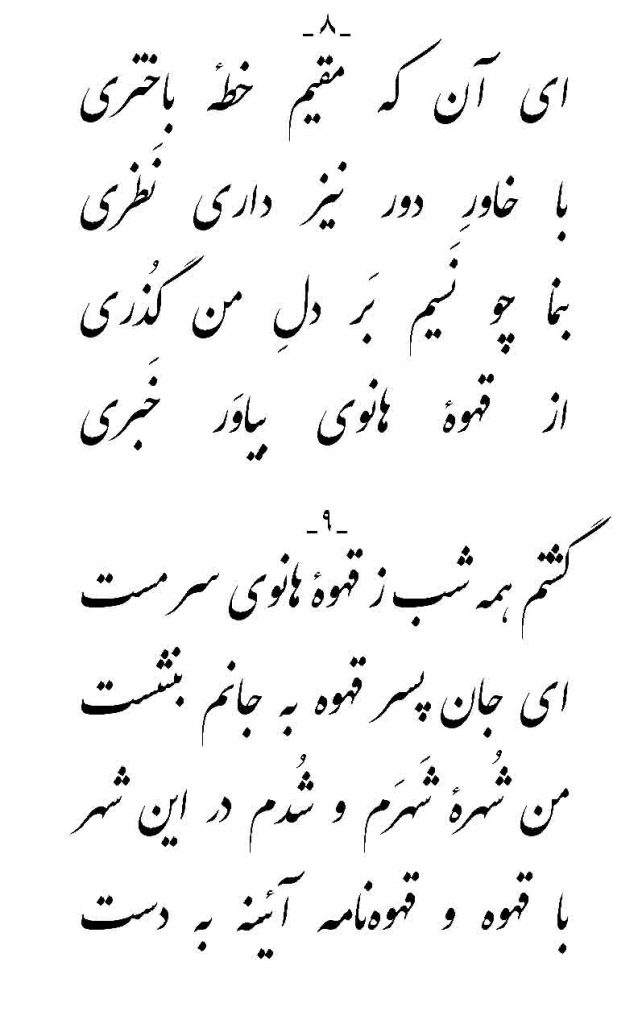 -۸-
ای آن که مقیم خطهٔ باختری
با خاورِ دور نیز داری نَظری
بنما چو نَسیم بَر دلِ من گُذری
از قهوهٔ هانوی بیاوَر خَبری
-۹-
گشتم همه شب ز قهوهٔ هانوی سرمست
ای جان پسر قهوه به جانم بنشست
من شُهرهٔ شَهرَم و شُدم در این شهر
با قهوه و قهوه‌نامه آئینه به دست